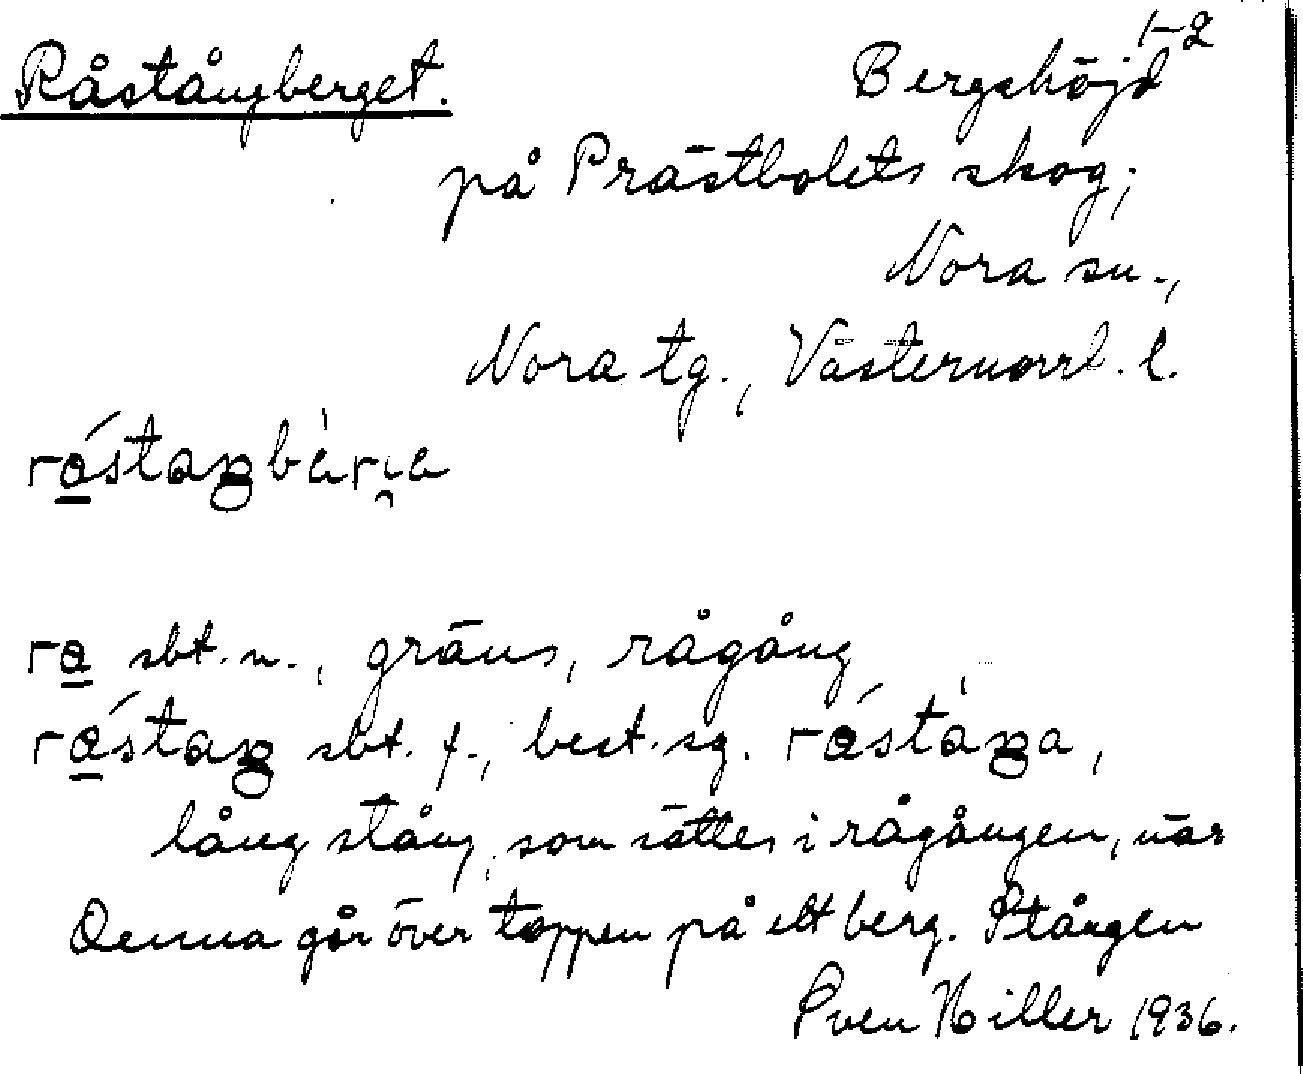 1-2
Råstångberget. Bergshöjd
på Prästbolets skog;
Nora sn.,
Nora tg., Västernorrl. l.
ra sbt. n., gräns, rågång
sbt. f., best. sg.
lång stång, som sättes i rågången, när
denna går över toppen på ett berg. Stången
Sven Hiller 1936.